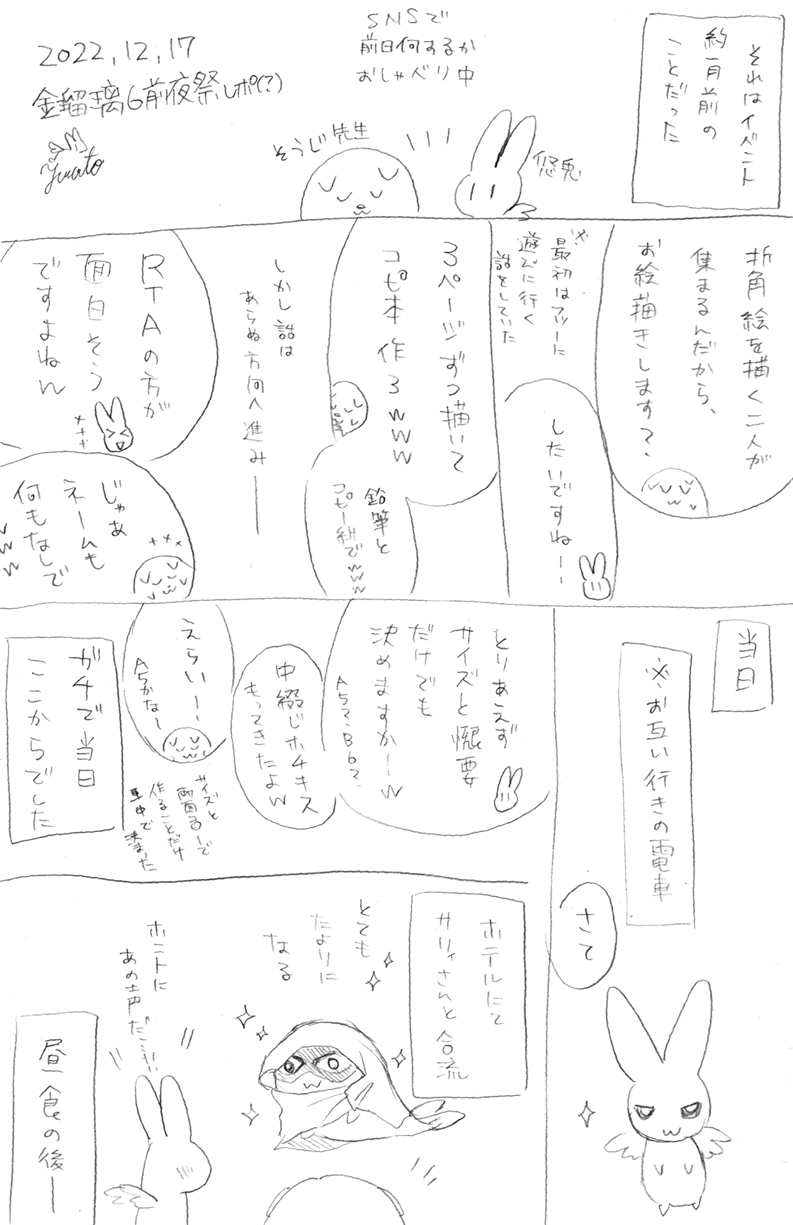 2022.12.17
金瑠璃6前夜祭レポ(?)
Yuuto
SNSで
前日何するか
おしゃべり中
それはイベント
約一月前の
ことだった
そうじ先生
悠兎
折角絵を描く二人が
集まるんだから、
お絵描きします?、
※最初はフツーに
遊びに行く
話をしていた
したいですねー、
3ページずつ描いて
コピ本作ろwww
鉛筆と
コピー紙でwww
しかし話は
あらぬ方向へ進み――
RTAの方が
面白そう
ですよねん
じゃあ
ネームも
何もなしで
www
当日
※お互い行きの電車
さて
とりあえず
サイズと概要
だけでも
決めますかーw
A5?、B6?、
中綴じホチキス
もってきたよw
えらいー、
A5かな〜
サイズと
両面刷りで
作ることだけ
車中で
決まった
ガチで当日
ここからでした
ホテルにて
サリィさんと合流
とても
たよりに
なる
ホントに
あの声だ…!!
昼食の後―